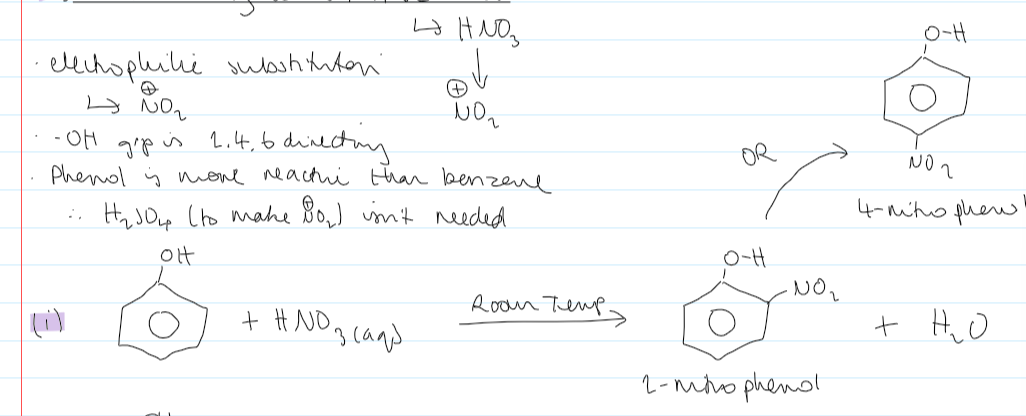 ↳ HNO3
· electrophilic substitution
↓
↳ ⊕NO2
⊕NO2
· -OH grp is 2,4,6 directing
· Phenol is more reactive than benzene
∴ H2SO4 (to make ⊕NO2) isn't needed
OR
O-H
NO2
4-nitrophenol
(i)
OH
+ HNO3(aq)
Room Temp
O-H
NO2
+ H2O
2-nitrophenol